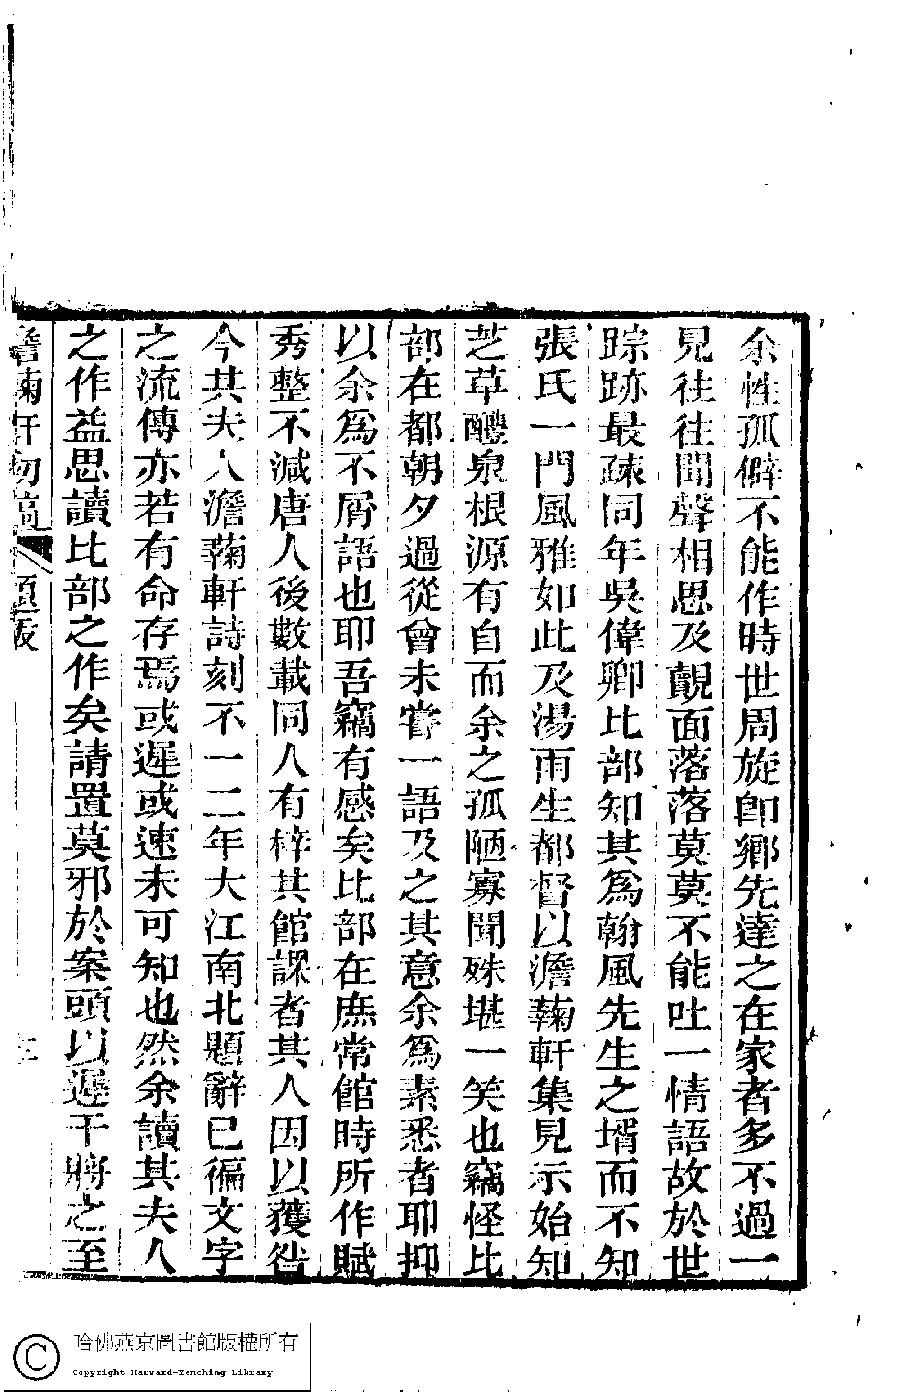 余性孤僻不能作時世周旋卽鄉先達之在家者多不過一
見往往聞聲相思及覿面落落莫莫不能吐一情語故於世
踪跡最疎同年吳偉卿比部知其爲翰風先生之壻而不知
張氏一門風雅如此及湯雨生都督以澹蘜軒集見示始知
芝草醴泉根源有自而余之孤陋寡聞殊堪一笑也竊怪比
部在都朝夕過從曾未嘗一語及之其意余爲素悉者耶抑
以余爲不屑語也耶吾竊有感矣比部在庶常館時所作賦
秀整不減唐人後數載同人有梓其館課者其人因以獲咎
今其夫人澹蘜軒詩刻不一二年大江南北題辭已徧文字
之流傳亦若有命存焉或遲或速未可知也然余讀其夫人
之作益思讀比部之作矣請置莫邪於案頭以遲干將之至
澹蘜軒初稿 題跋
哈佛燕京圖書館版權所有
Copyright Harvard-Yenching Library